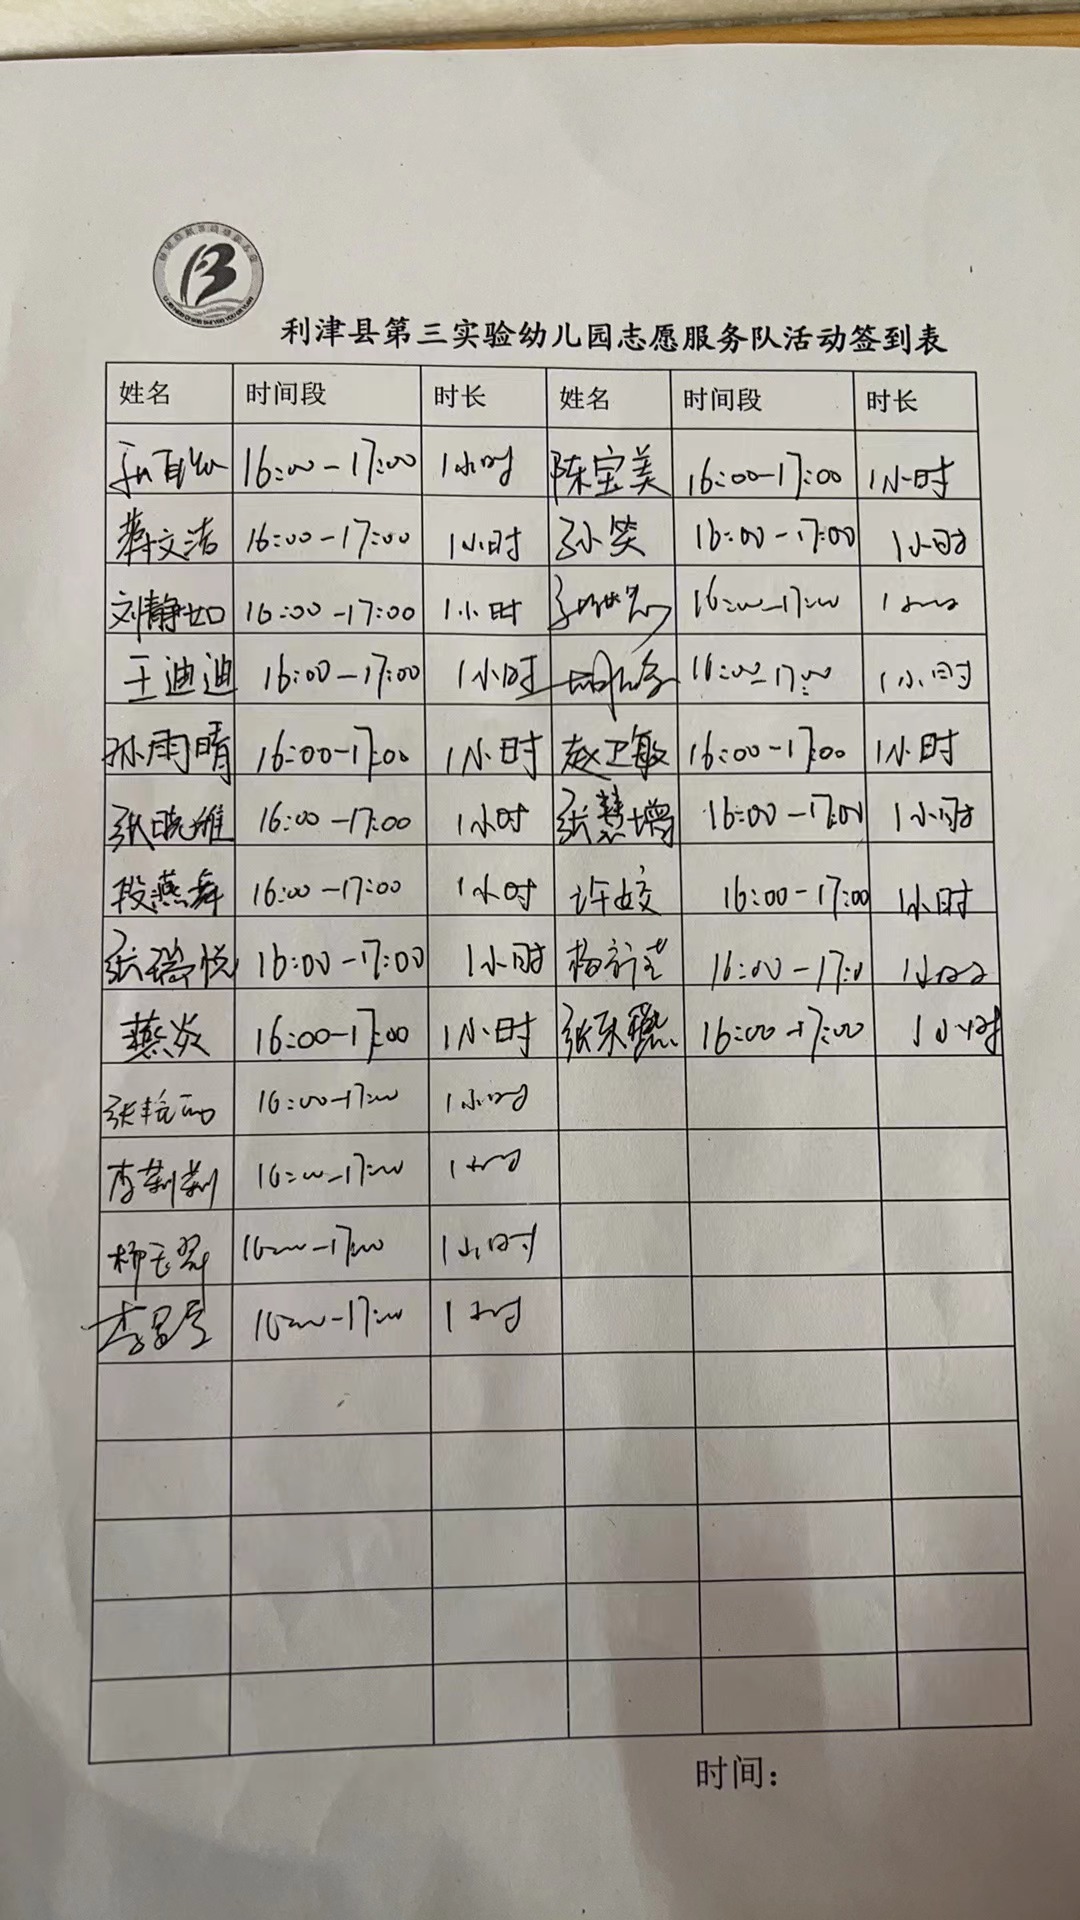 利津县第三实验幼儿园志愿服务队活动签到表
姓名 时间段 时长 姓名 时间段 时长
16:00-17:00 1小时 陈宝美 16:00-17:00 1小时
蒋文洁 16:00-17:00 1小时 孙笑 16:00-17:00 1小时
刘静如 16:00-17:00 1小时 16:00-17:00 1小时
王迪迪 16:00-17:00 1小时 16:00-17:00 1小时
孙雨晴 16:00-17:00 1小时 赵卫敏 16:00-17:00 1小时
张晓雅 16:00-17:00 1小时 张慧增 16:00-17:00 1小时
段燕舞 16:00-17:00 1小时 许姣 16:00-17:00 1小时
张瑞悦 16:00-17:00 1小时 16:00-17:0 1小时
燕炎 16:00-17:00 1小时 16:00-17:00 1小时
16:00-17:00 1小时
李荆荆 16:00-17:00 1小时
16:00-17:00 1小时
16:00-17:00 1小时
时间: